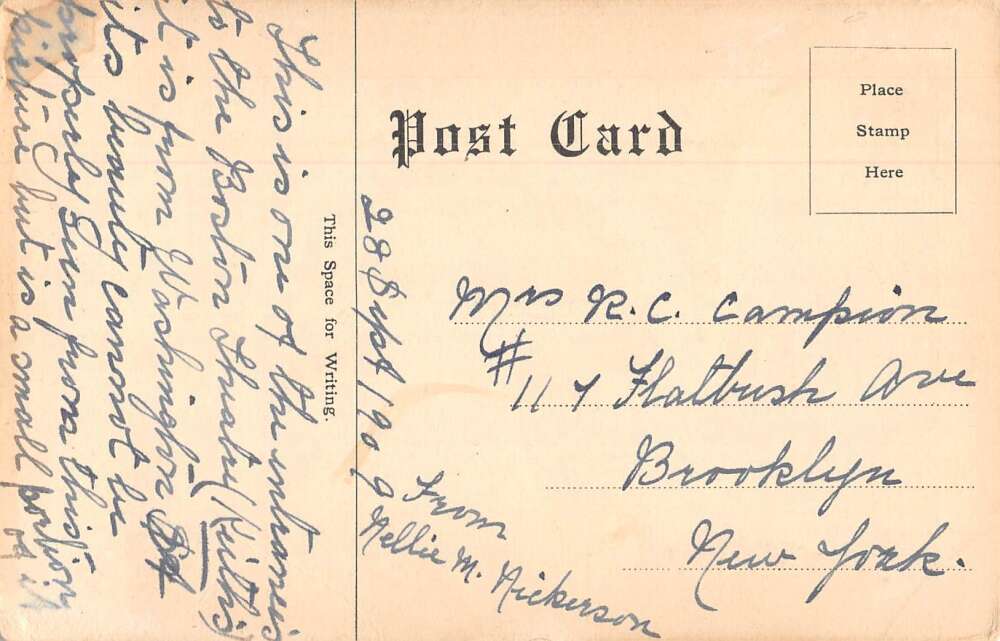 Post Card
Place
Stamp
Here
This Space for Writing.
This is one of the entrances
to the Boston Theatre (Keith's)
it is from Washington St
its beauty cannot be
seen from this
picture but is a small portion
of it
28 Sept 1909
Mrs R. C. Campion
# 117 Flatbush Ave
Brooklyn
New York.
From
Nellie M. Nickerson